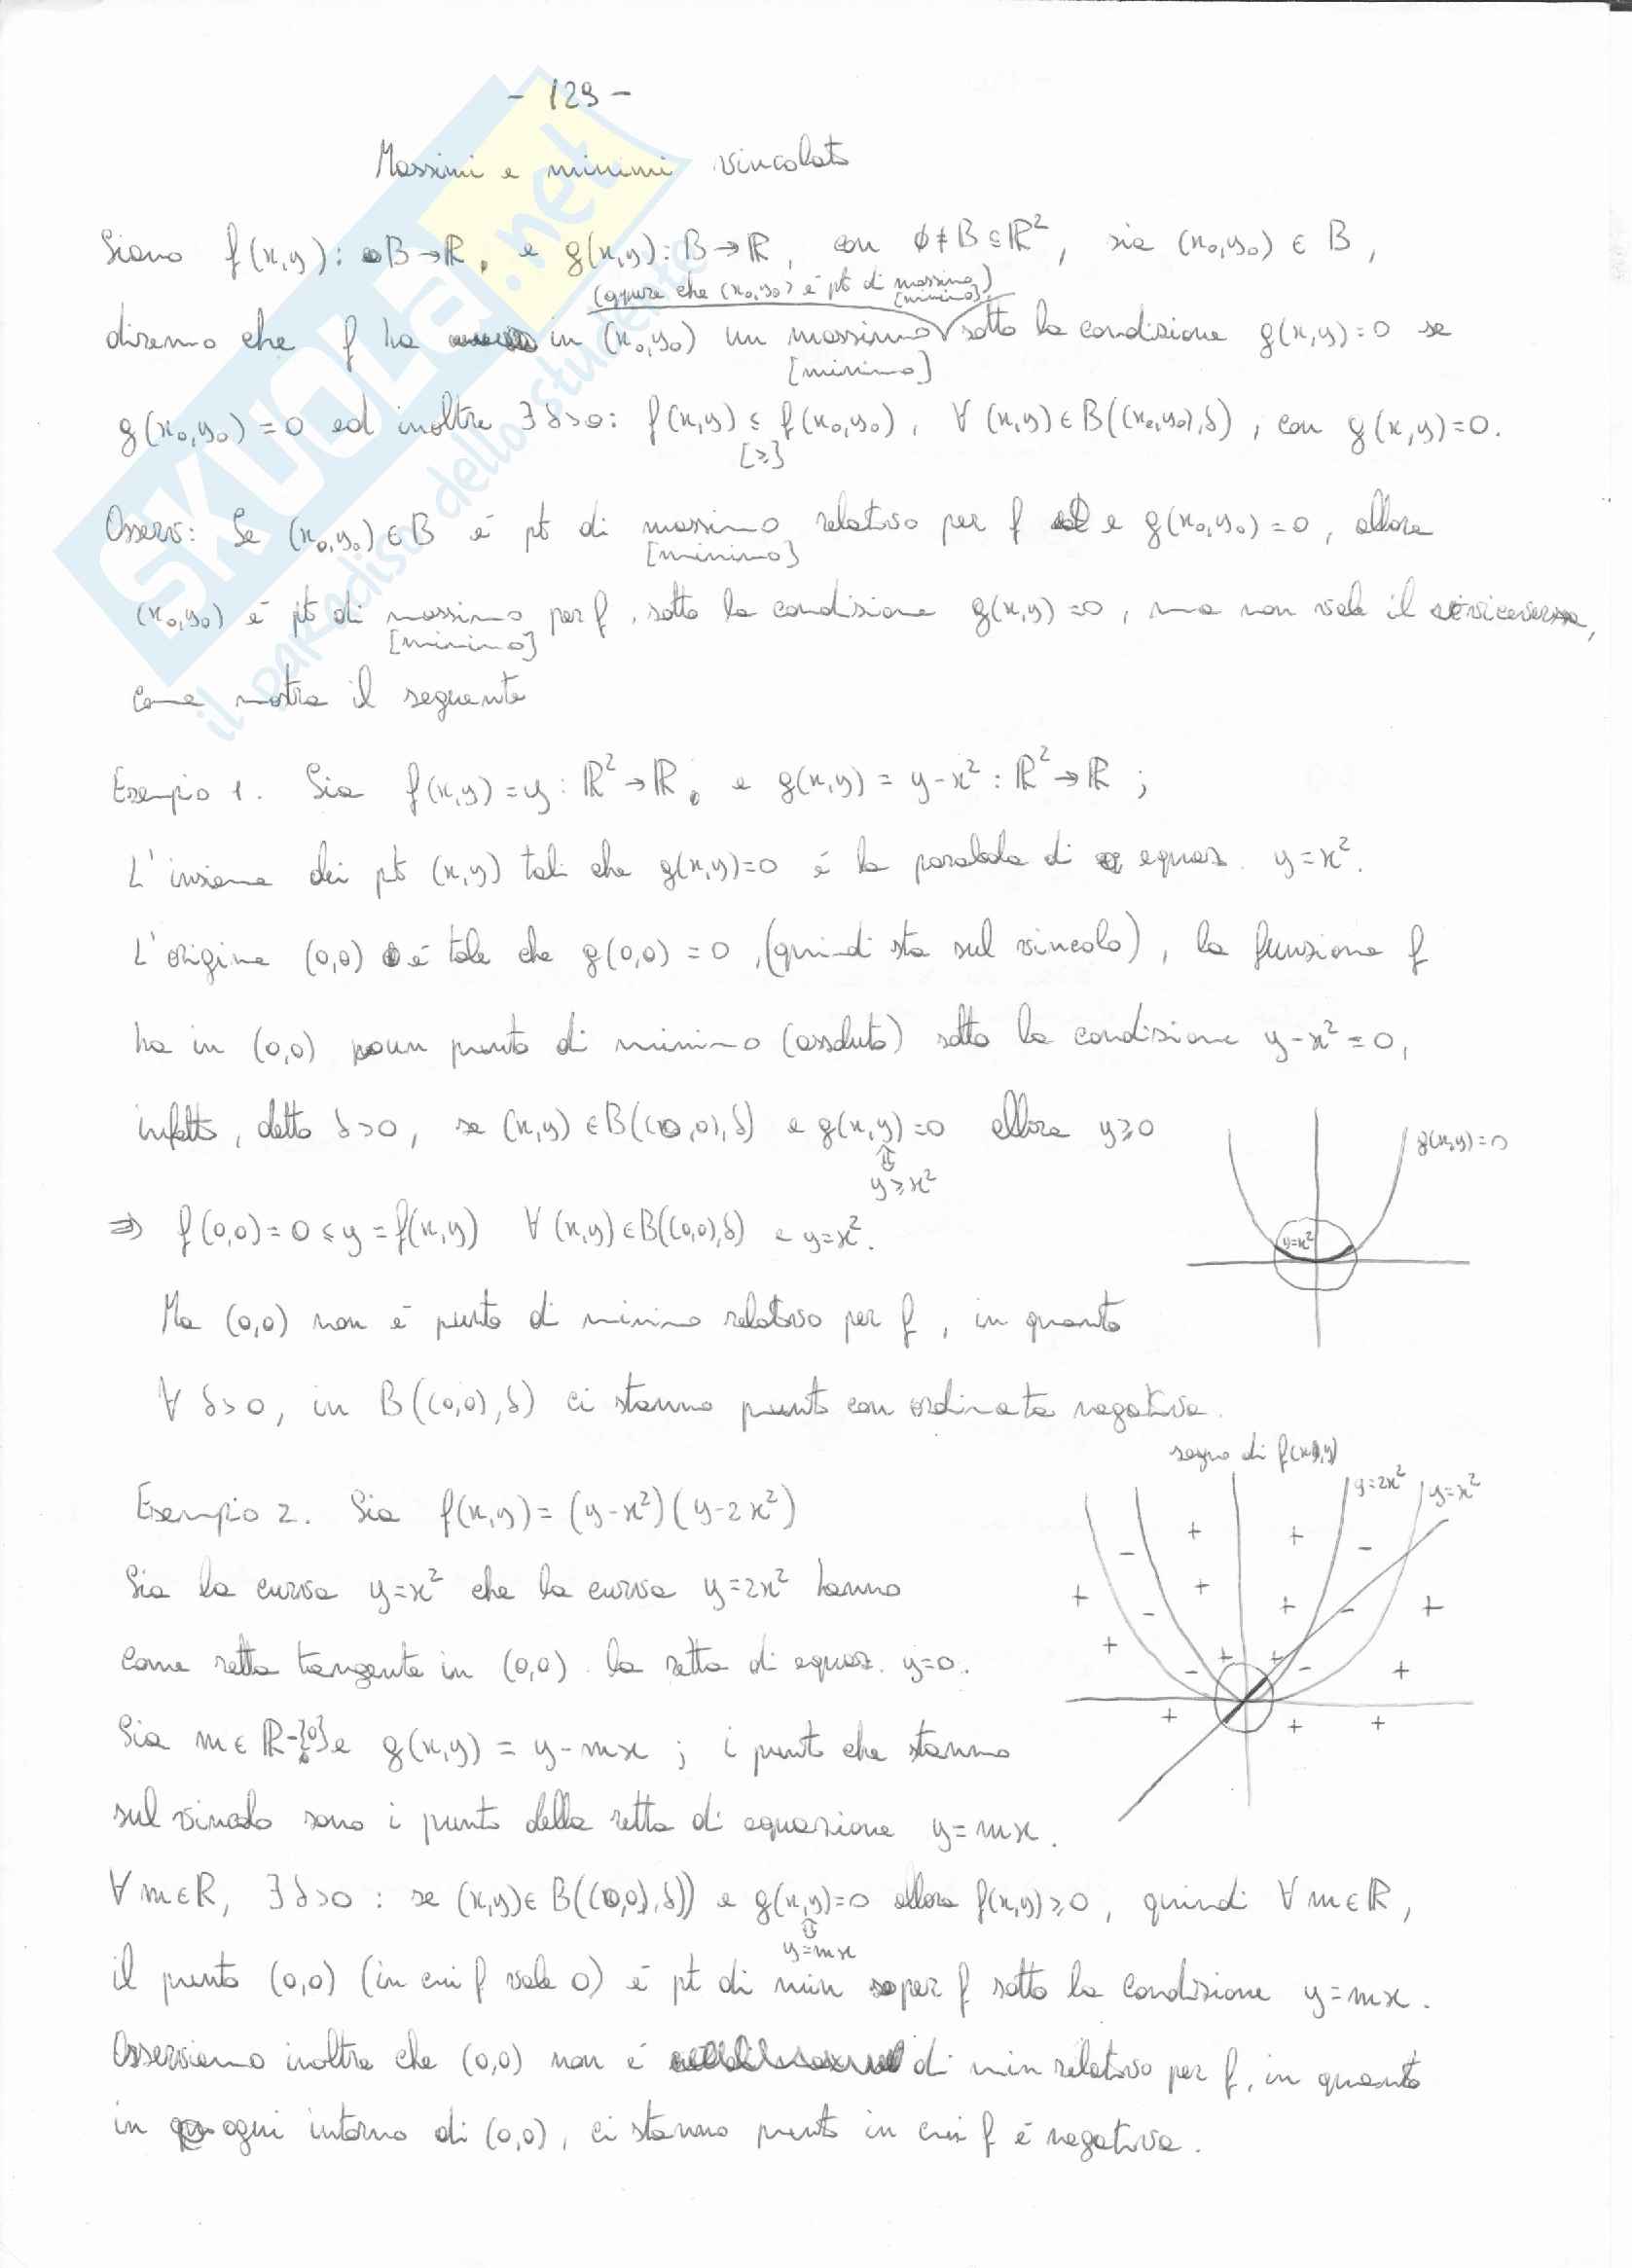 - 129 -
Massimi e minimi vincolati
Siano f(x,y): B→ℝ, e g(x,y): B→ℝ, con ∅≠B⊆ℝ², sia (x₀,y₀) ∈ B,
(oppure che (x₀,y₀) è pt di massimo)
[minimo]
diremo che f ha in (x₀,y₀) un massimo sotto la condizione g(x,y)=0 se
[minimo]
g(x₀,y₀)=0 ed inoltre ∃ δ>0: f(x,y) ≤ f(x₀,y₀), ∀ (x,y)∈B((x₀,y₀),δ), con g(x,y)=0.
[≥]
Osserv: Se (x₀,y₀)∈B è pt di massimo relativo per f e g(x₀,y₀)=0, allora
[minimo]
(x₀,y₀) è pt di massimo per f, sotto la condizione g(x,y)=0, ma non vale il viceversa,
[minimo]
come mostra il seguente
Esempio 1. Sia f(x,y)=y: ℝ²→ℝ, e g(x,y)=y-x²: ℝ²→ℝ;
L'insieme dei pt (x,y) tali che g(x,y)=0 è la parabola di equaz. y=x².
L'origine (0,0) è tale che g(0,0)=0, (quindi sta sul vincolo), la funzione f
ha in (0,0) un punto di minimo (assoluto) sotto la condizione y-x²=0,
infatti, detto δ>0, se (x,y)∈B((0,0),δ) e g(x,y)=0 allora y≥0
⇕
y=x²
g(x,y)=0
y=x²
⇒ f(0,0)=0≤y=f(x,y) ∀ (x,y)∈B((0,0),δ) e y=x².
Ma (0,0) non è punto di minimo relativo per f, in quanto
∀ δ>0, in B((0,0),δ) ci stanno punti con ordinata negativa.
segno di f(x,y)
y=2x² y=x²
Esempio 2. Sia f(x,y)=(y-x²)(y-2x²)
Sia la curva y=x² che la curva y=2x² hanno
come retta tangente in (0,0) la retta di equaz. y=0.
Sia m∈ℝ-{0} e g(x,y)=y-mx; i punti che stanno
sul vincolo sono i punti della retta di equazione y=mx.
∀ m∈ℝ, ∃ δ>0: se (x,y)∈B((0,0),δ)) e g(x,y)=0 allora f(x,y)≥0, quindi ∀ m∈ℝ,
⇕
y=mx
il punto (0,0) (in cui f vale 0) è pt di min per f sotto la condizione y=mx.
Osserviamo inoltre che (0,0) non è di min relativo per f, in quanto
in ogni intorno di (0,0), ci stanno punti in cui f è negativa.
SKUOLA.net
il paradiso dello studente